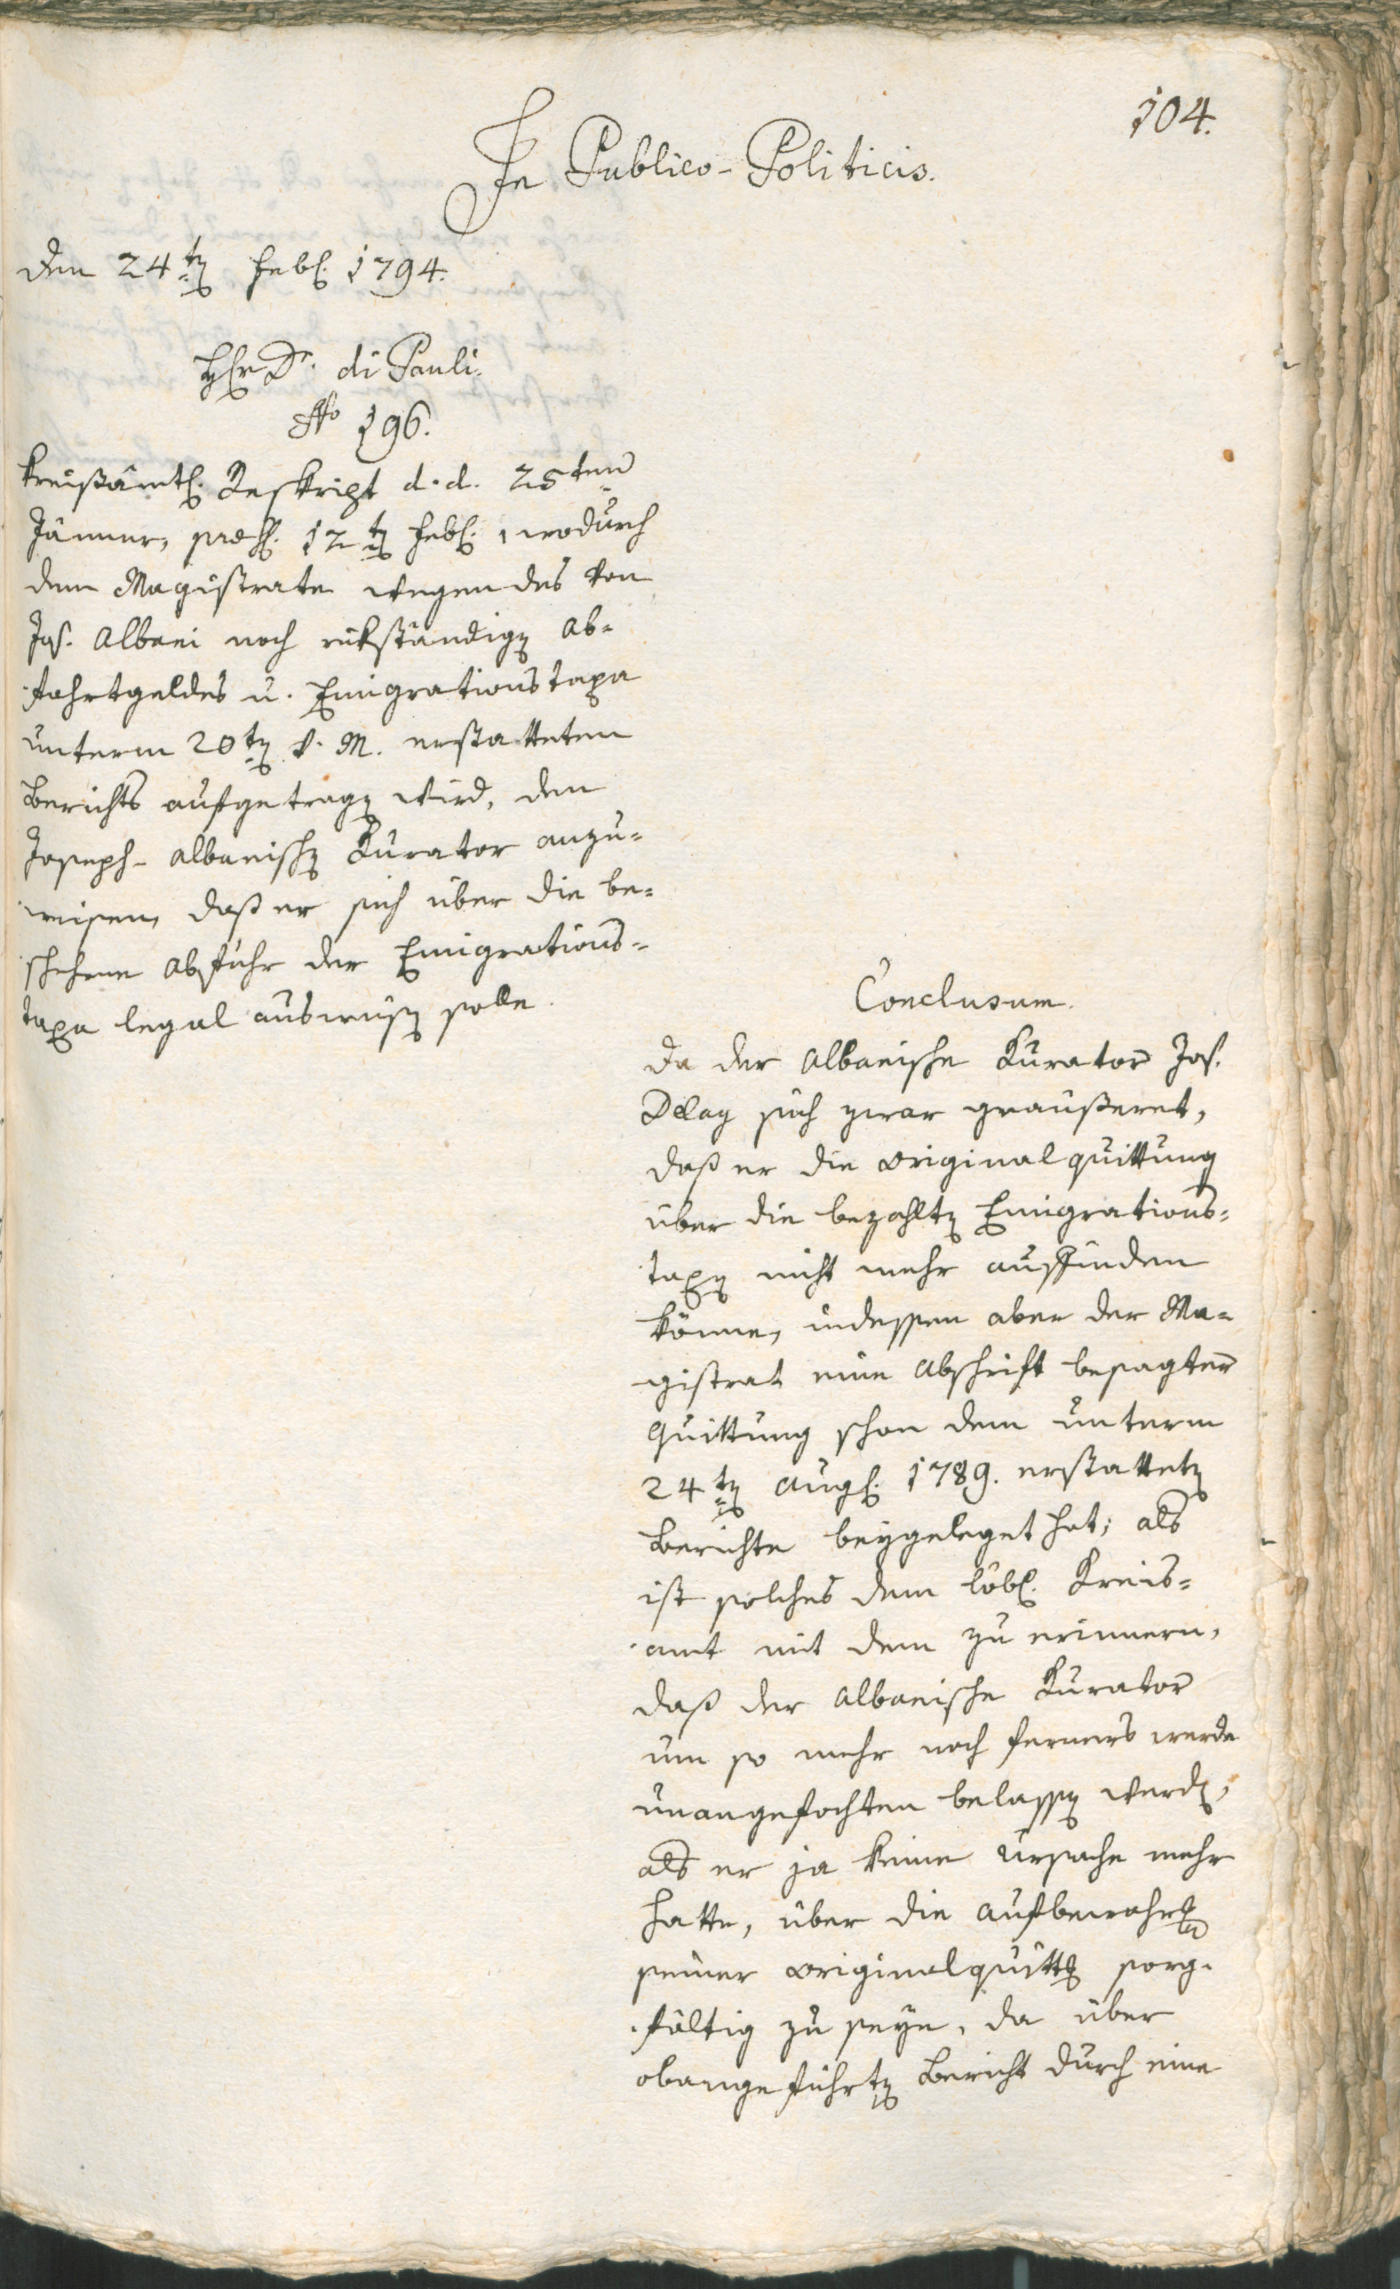 104.
In Publico-Politicis.
Den 24ten Febr. 1794.
Hr Dr. di Pauli.
No 196.
Kreisämtl. Reskript d. d. 25ten
Jänner, prod. 12ten Febr., wodurch
dem Magistrate wegen des von
Jos. Albani noch rükständigen Ab-
fahrtgeldes u. Emigrationstaxe
unterm 20ten v. M. erstatteten
Berichts aufgetragen wird, dem
Joseph-Albanischen Kurator anzu-
weisen, daß er sich über die be-
schehene Abfuhr der Emigrations-
taxe legal ausweisen solle.
Conclusum.
Da der Albanische Kurator Jos.
Delag sich zwar geäußeret,
daß er die Originalquittung
über die bezahlten Emigrations-
taxen nicht mehr auffinden
könne, indessen aber der Ma-
gistrat eine Abschrift besagter
Quittung schon dem unterm
24ten Aug. 1789. erstatteten
Berichte beygeleget hat; als
ist solches dem löbl. Kreis-
amt mit dem zu erinnern,
daß der Albanische Kurator
um so mehr noch ferners werde
unangefochten belassen werden,
als er ja keine Ursache mehr
hatte, über die Aufbewahrung
seiner Originalquittung sorg-
fältig zu seyn, da über
obangeführten Bericht durch eine